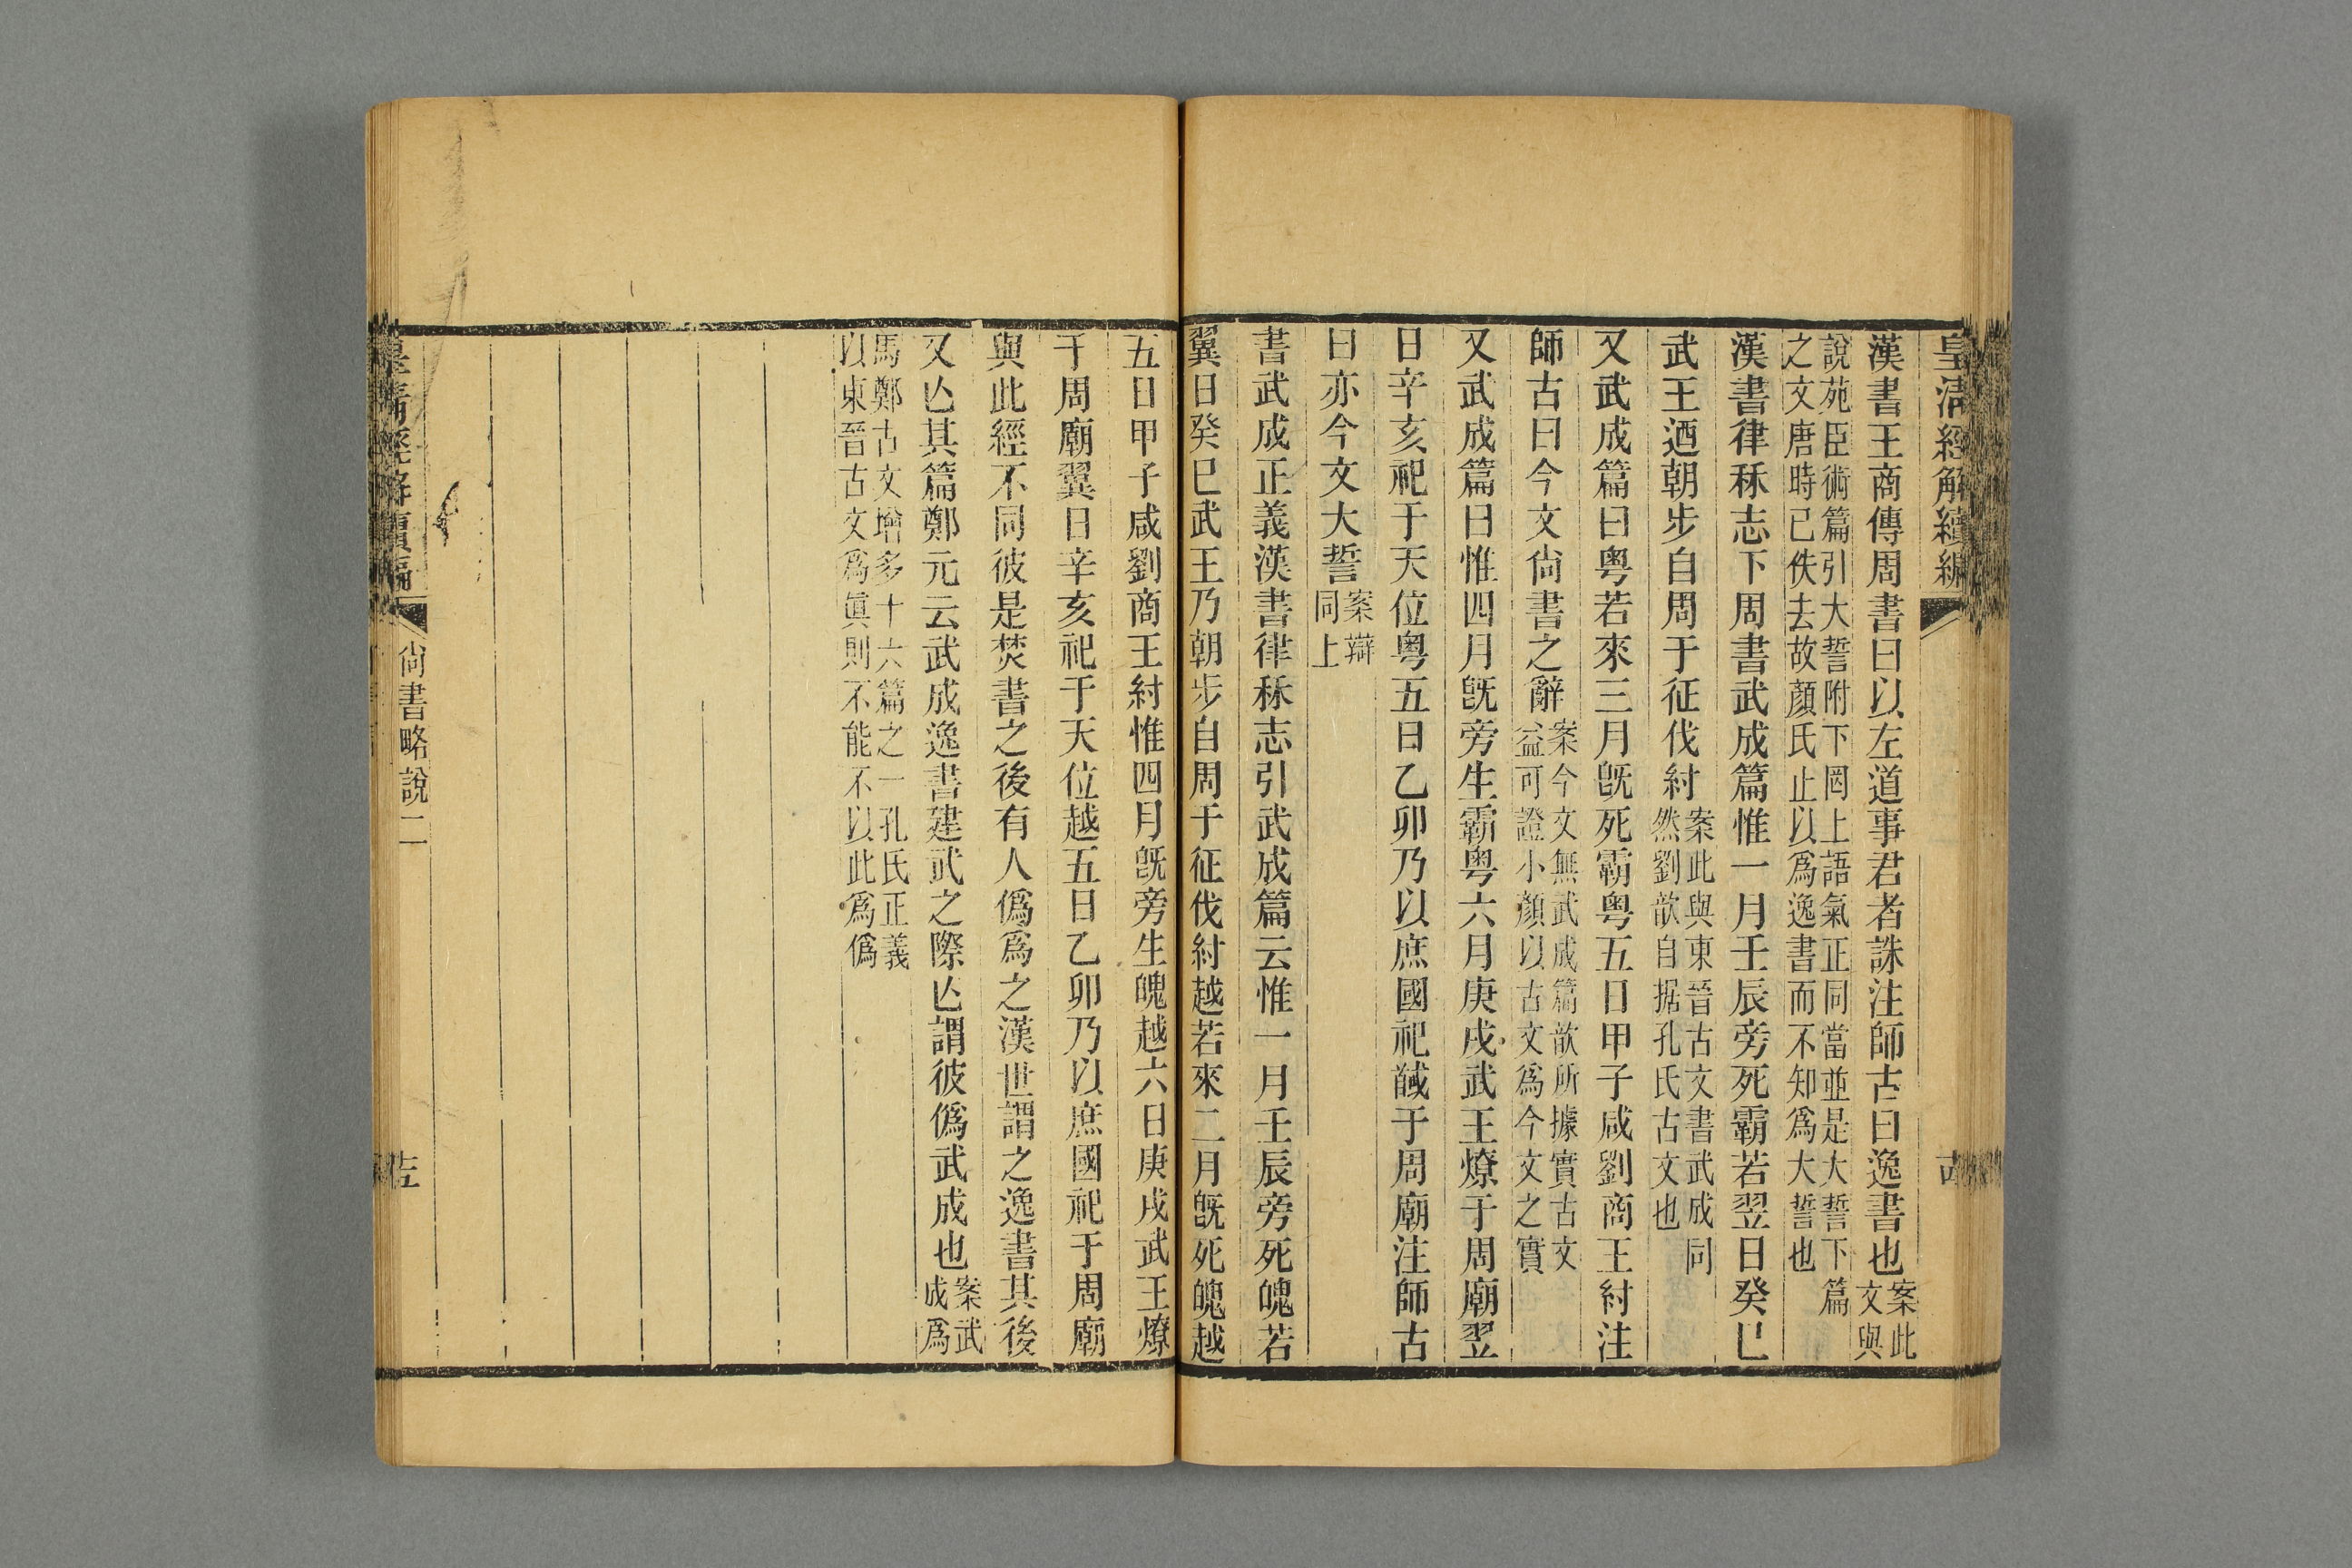 皇清經解續編
漢書王商傳周書曰以左道事君者誅注師古曰逸書也案此文與
說苑臣術篇引大誓附下罔上語氣正同當並是大誓下篇
之文唐時已佚去故顏氏止以爲逸書而不知爲大誓也
漢書律秝志下周書武成篇惟一月壬辰旁死霸若翌日癸巳
武王迺朝步自周于征伐紂案此與東晉古文書武成同然劉歆自据孔氏古文也
又武成篇曰粤若來三月旣死霸粤五日甲子咸劉商王紂注
師古曰今文尙書之辭案今文無武成篇歆所據實古文益可證小顏以古文爲今文之實
又武成篇曰惟四月旣旁生霸粤六月庚戌武王燎于周廟翌
日辛亥祀于天位粤五日乙卯乃以庶國祀馘于周廟注師古
曰亦今文大誓案辯同上
書武成正義漢書律秝志引武成篇云惟一月壬辰旁死魄若
翼日癸巳武王乃朝步自周于征伐紂越若來二月旣死魄越
五日甲子咸劉商王紂惟四月旣旁生魄越六日庚戌武王燎
于周廟翼日辛亥祀于天位越五日乙卯乃以庶國祀于周廟
與此經不同彼是焚書之後有人僞爲之漢世謂之逸書其後
又亾其篇鄭元云武成逸書建武之際亾謂彼僞武成也案武成爲
馬鄭古文增多十六篇之一孔氏正義
以東晉古文爲眞則不能不以此爲僞
尙書略說二